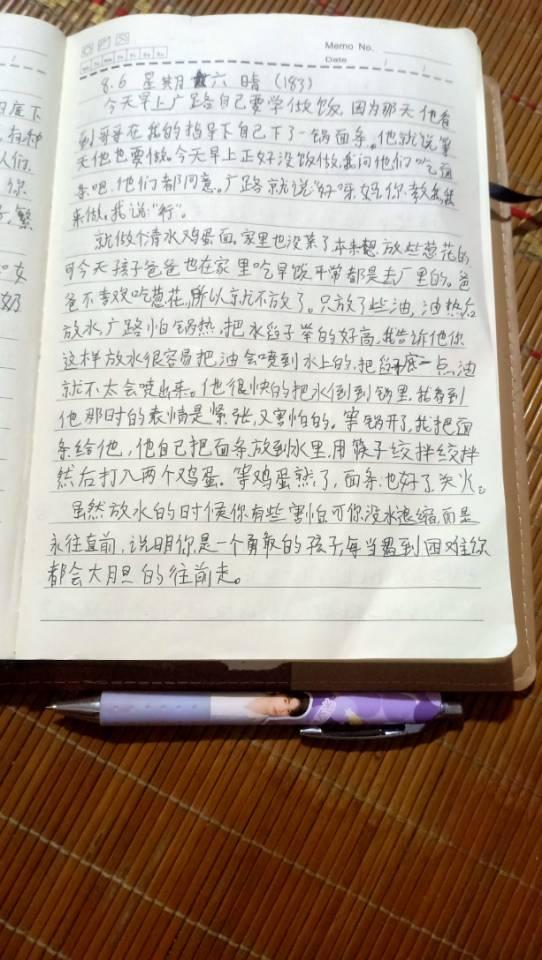 Memo No.
Date
8.6 星期六 晴 (183)
今天早上广路自己要学做饭,因为那天他看
到哥哥在我的指导下自己下了一锅面条。他就说
天他也要做。今天早上正好没饭做,我问他们吃面
条吧,他们都同意。广路就说"好呀,妈你教我
来做。我说:"行"。
就做个清水鸡蛋面。家里也没菜了本来想放些葱花的,
可今天孩子爸爸也在家里吃早饭,平常都是去厂里的。爸
爸不喜欢吃葱花,所以就不放了。只放了些油,油热后
放水,广路怕锅热,把水舀子举的好高,我告诉他你
这样放水很容易把油会喷到水上的,把舀子底一点,油
就不太会喷出来。他很快的把水倒到锅里,我看到
他那时的表情是紧张,又害怕的。等锅开了,我把面
条给他,他自己把面条放到水里,用筷子绞拌绞拌
然后打入两个鸡蛋。等鸡蛋熟了,面条也好了,关火。
虽然放水的时候你有些害怕,可你没水退缩,而是
永往直前,说明你是一个勇敢的孩子,每当遇到困难你
都会大胆的往前走。